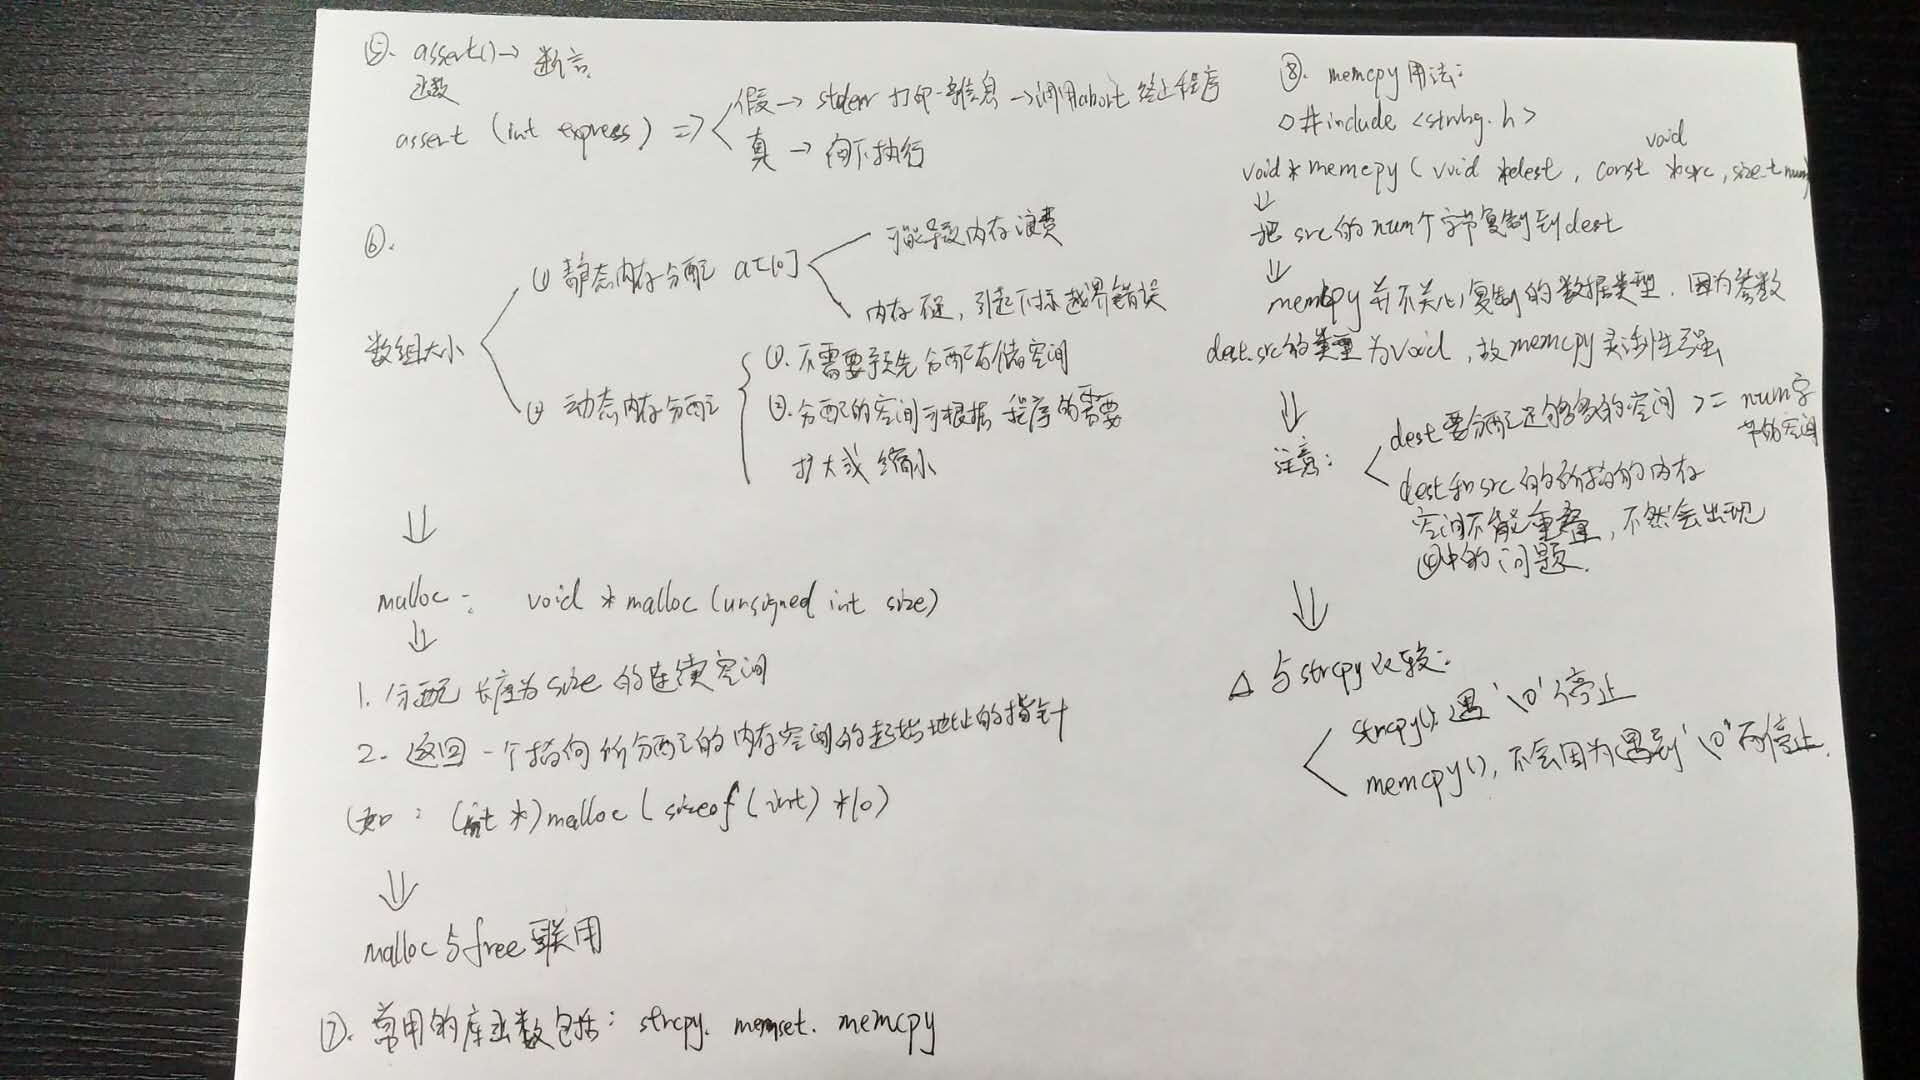 ⑤. assert()→ 断言.
函数
assert (int express) => 假 → stderr 打印一条信息 → 调用abort 终止程序
真 → 向下执行
⑥.
数组大小
① 静态内存分配 a[10]
可能导致内存浪费
内存不足, 引起下标越界错误
② 动态内存分配
①. 不需要预先分配存储空间
②. 分配的空间可根据 程序的需要
扩大或缩小
⇓
malloc : void * malloc (unsigned int size)
⇓
1. 分配 长度为size 的连续空间
2. 返回 一个指向 所分配的内存空间的起始地址的指针
(如 : (int *) malloc ( sizeof (int) *10)
⇓
malloc 与 free 联用
⑦. 常用的库函数包括: strcpy. memset. memcpy
⑧. memcpy 用法:
#include <string.h>
void
void * memcpy ( void *dest , const *src , size_t num)
⇓
把 src 的 num个字节复制到 dest
⇓
memcpy 并不关心复制的数据类型. 因为参数
dest. src的类型 为void , 故 memcpy 灵活性强
⇓
注意:
dest要分配足够多的空间 >= num字
节的空间
dest和src 的所指的内存
空间不能重叠, 不然会出现
④中的问题.
⇓
△ 与strcpy比较:
strcpy(), 遇 '\0' 停止
memcpy(), 不会因为遇到 '\0' 而停止.